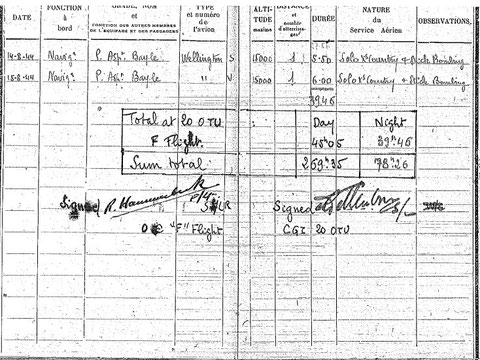 DATE
FONCTION à bord
GRADE, NOM et FONCTION DES AUTRES MEMBRES DE L'ÉQUIPAGE ET DES PASSAGERS
TYPE et numéro de l'avion
ALTITUDE maxima
DISTANCE et nombre d'atterrissages
DURÉE
NATURE du Service Aérien
OBSERVATIONS,
14-8-44 Navigr P. Aspt Bayle Wellington S 15000 1 5.50 Solo Xcountry + Bombing
15-8-44 Navigr P. Aspt Bayle " V 15000 1 6.00 Solo Xcountry + Bombing
39.45
Total at 20 OTU Day Night
F Flight. 45.05 39.45
Sum total 269.35 78.26
Signed R. S/LR Signed
OC "F" Flight CGI 20 OTU